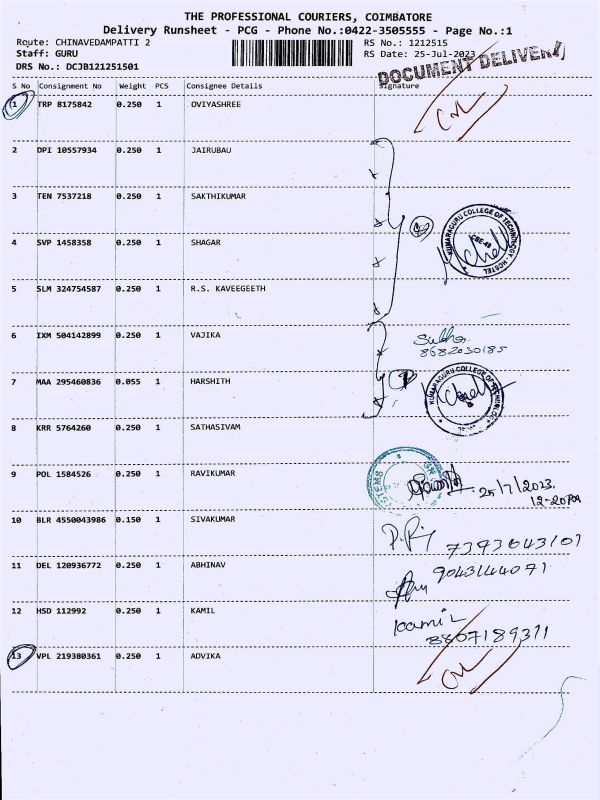 THE PROFESSIONAL COURIERS, COIMBATORE
Delivery Runsheet - PCG - Phone No.:0422-3505555 - Page No.:1
Route: CHINAVEDAMPATTI 2 RS No.: 1212515
Staff: GURU RS Date: 25-Jul-2023
DRS No.: DCJB121251501 DOCUMENT DELIVERY
S No Consignment No Weight PCS Consignee Details Signature
1 TRP 8175842 0.250 1 OVIYASHREE
2 DPI 10557934 0.250 1 JAIRUBAU
3 TEN 7537218 0.250 1 SAKTHIKUMAR
4 SVP 1458358 0.250 1 SHAGAR
KUMARAGURU COLLEGE OF TECHNOLOGY - HOSTEL
CBE-49
5 SLM 324754587 0.250 1 R.S. KAVEEGEETH
6 IXM 504142899 0.250 1 VAJIKA
8682030185
7 MAA 295460836 0.055 1 HARSHITH
KUMARAGURU COLLEGE OF TECHNOLOGY
8 KRR 5764260 0.250 1 SATHASIVAM
9 POL 1584526 0.250 1 RAVIKUMAR
25/7/2023.
12-20PM
10 BLR 4550043986 0.150 1 SIVAKUMAR
7393643101
11 DEL 120936772 0.250 1 ABHINAV
9043144071
12 HSD 112992 0.250 1 KAMIL
kamil
8807189311
13 VPL 219380361 0.250 1 ADVIKA